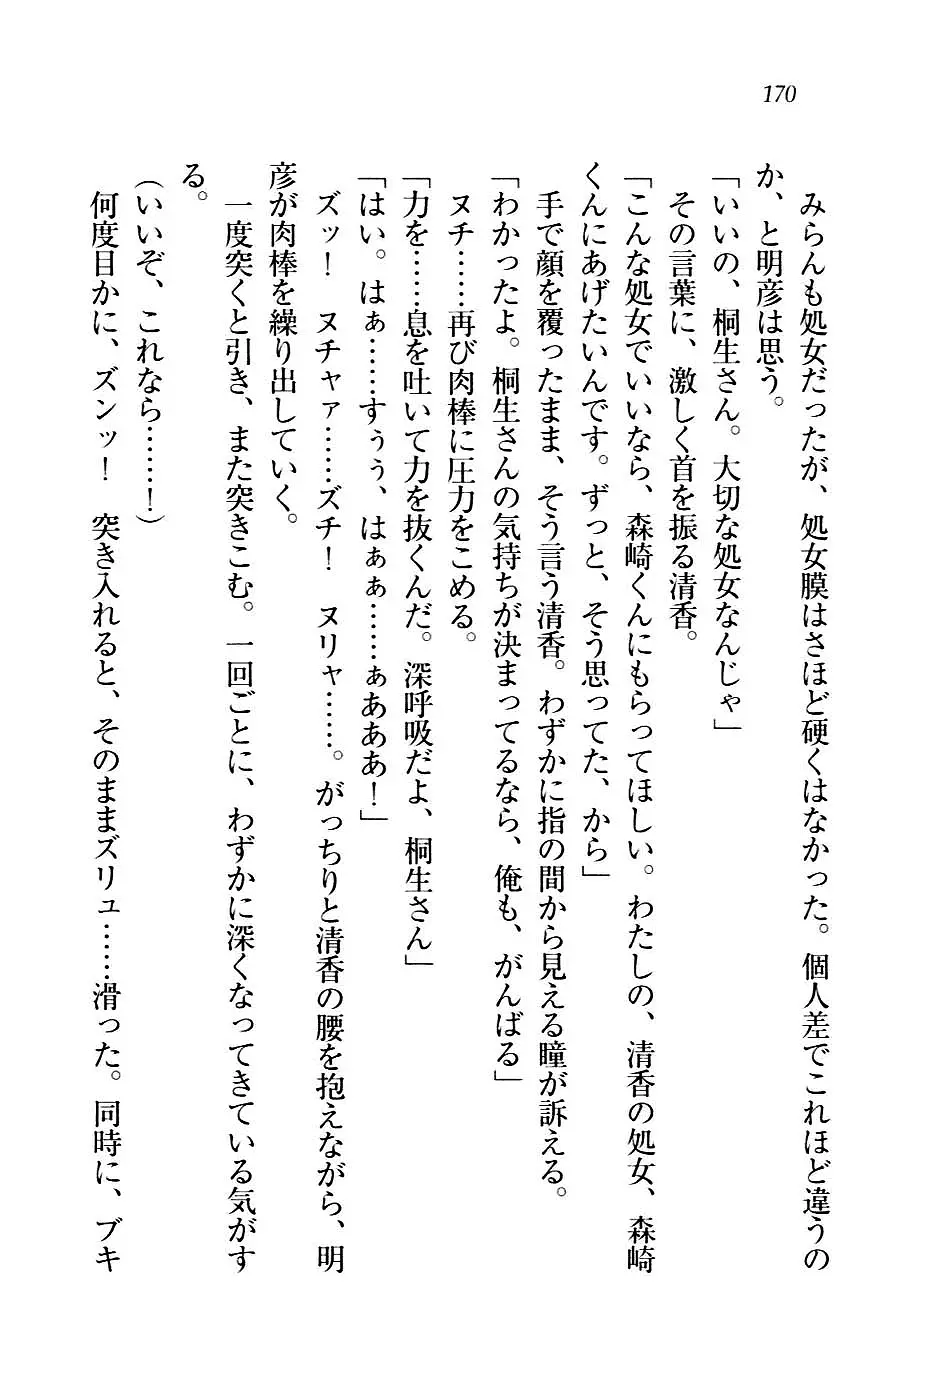 170
みらんも処女だったが、処女膜はさほど硬くはなかった。個人差でこれほど違うの
か、と明彦は思う。
「いいの、桐生さん。大切な処女なんじゃ」
その言葉に、激しく首を振る清香。
「こんな処女でいいなら、森崎くんにもらってほしい。わたしの、清香の処女、森崎
くんにあげたいんです。ずっと、そう思ってた、から」
手で顔を覆ったまま、そう言う清香。わずかに指の間から見える瞳が訴える。
「わかったよ。桐生さんの気持ちが決まってるなら、俺も、がんばる」
ヌチ……再び肉棒に圧力をこめる。
「力を……息を吐いて力を抜くんだ。深呼吸だよ、桐生さん」
「はい。はぁ……すぅぅ、はぁぁ……ぁあああ！」
ズッ！　ヌチャァ……ズチ！　ヌリャ……。がっちりと清香の腰を抱えながら、明
彦が肉棒を繰り出していく。
一度突くと引き、また突きこむ。一回ごとに、わずかに深くなってきている気がす
る。
（いいぞ、これなら……！）
何度目かに、ズンッ！　突き入れると、そのままズリュ……滑った。同時に、ブキ